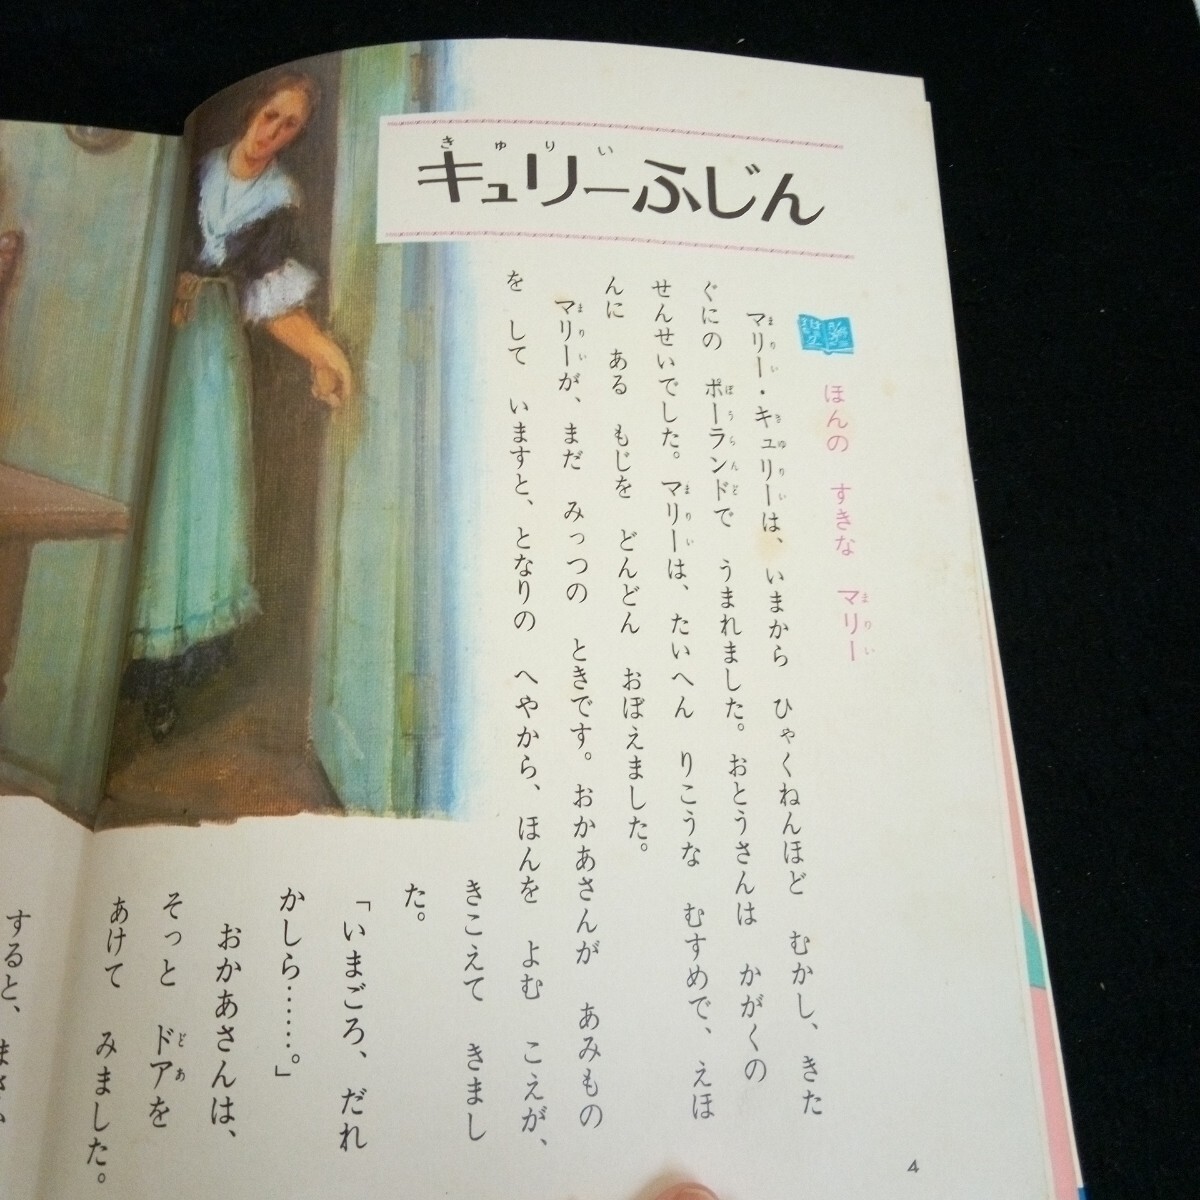 キュリーふじん
きゅりい
ほんの すきな マリー
まりい
マリー・キュリーは、いまから ひゃくねんほど むかし、きた
まりい きゅりい
ぐにの ポーランドで うまれました。おとうさんは かがくの
ぽうらんど
せんせいでした。マリーは、たいへん りこうな むすめで、えほ
まりい
んに ある もじを どんどん おぼえました。
マリーが、まだ みっつの ときです。おかあさんが あみもの
まりい
を して いますと、となりの へやから、ほんを よむ こえが、
きこえて きまし
た。
「いまごろ、だれ
かしら……。」
おかあさんは、
そっと ドアを
どあ
あけて みました。
すると、まさか
4